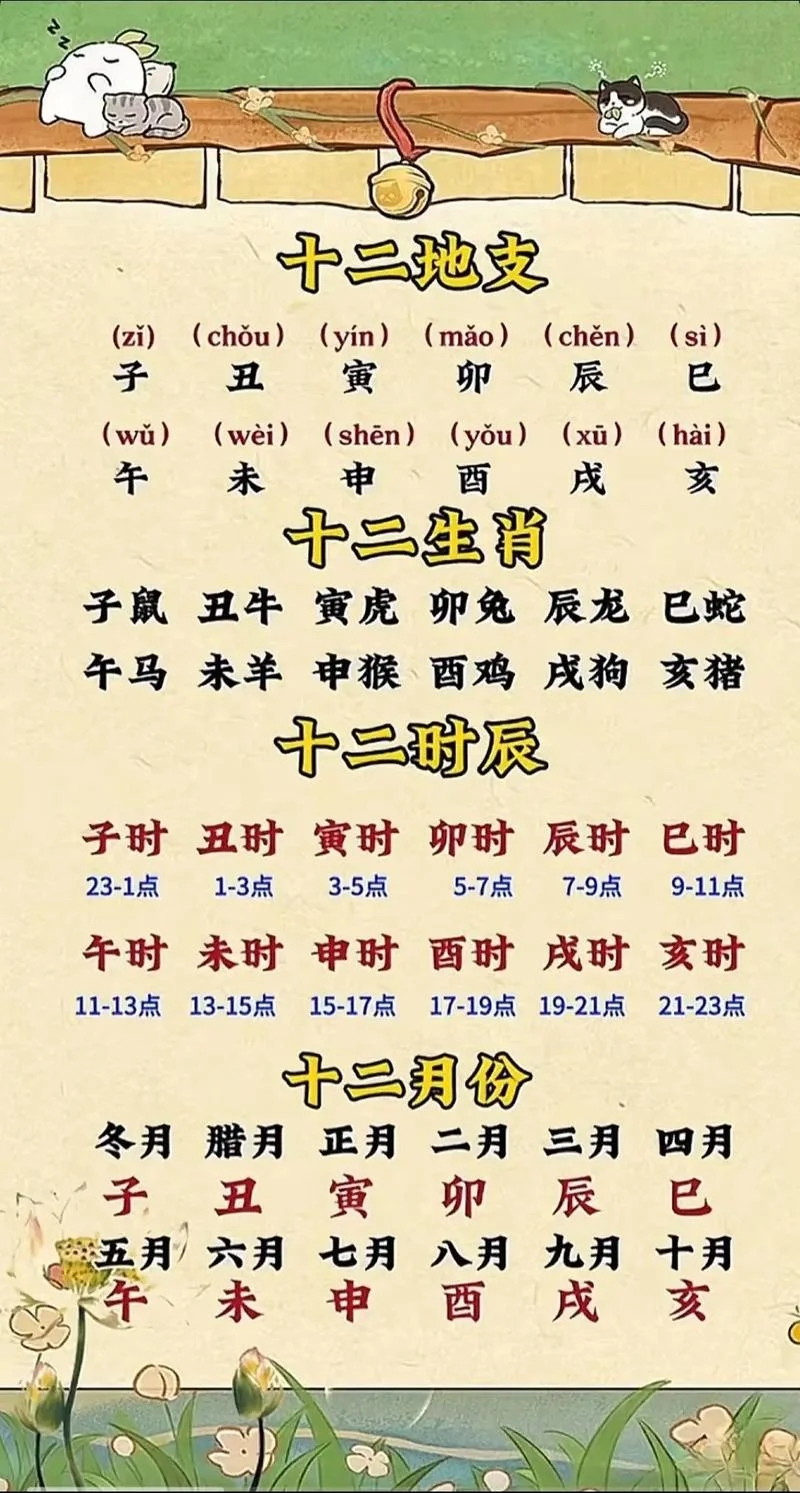 zz
十二地支
(zǐ) （chǒu） （yín） （mǎo） （chěn） （sì）
子 丑 寅 卯 辰 巳
（wǔ） （wèi） （shēn） （yǒu） （xū） （hài）
午 未 申 酉 戌 亥
十二生肖
子鼠 丑牛 寅虎 卯兔 辰龙 巳蛇
午马 未羊 申猴 酉鸡 戌狗 亥猪
十二时辰
子时 丑时 寅时 卯时 辰时 巳时
23-1点 1-3点 3-5点 5-7点 7-9点 9-11点
午时 未时 申时 酉时 戌时 亥时
11-13点 13-15点 15-17点 17-19点 19-21点 21-23点
十二月份
冬月 腊月 正月 二月 三月 四月
子 丑 寅 卯 辰 巳
五月 六月 七月 八月 九月 十月
午 未 申 酉 戌 亥